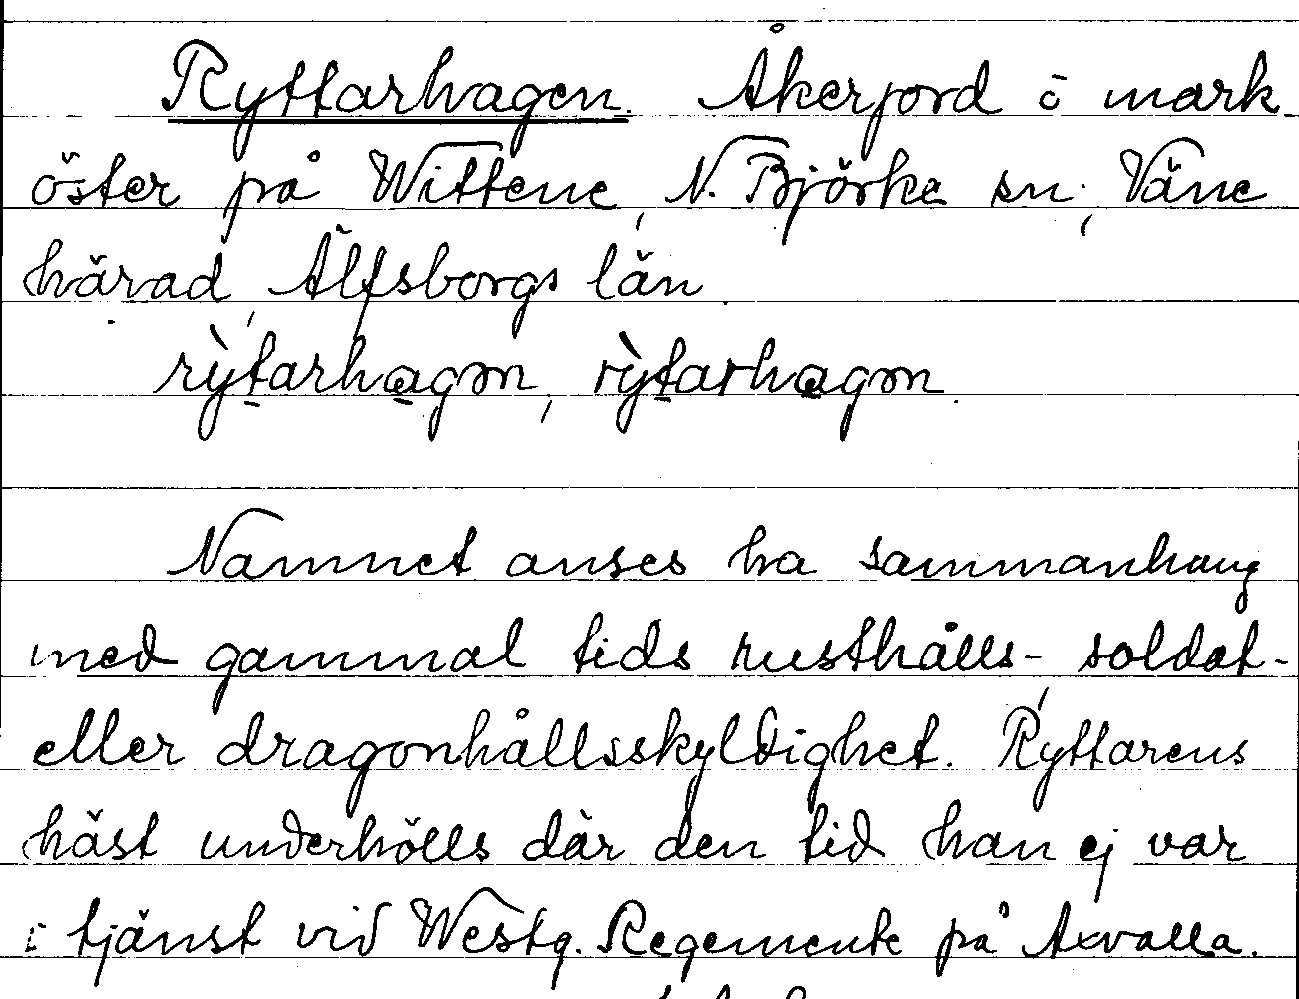 Ryttarhagen. Åkerjord i mark
öster på Wittene, N. Björke sn, Väne
härad, Älfsborgs län.
rỳtarhagən, rỳtarhagən.
Namnet anses ha sammanhang
med gammal tids rusthålls- soldat-
eller dragonhållsskyldighet. Ryttarens
häst underhölls där den tid han ej var
i tjänst vid Westg. Regemente på Axvalla.